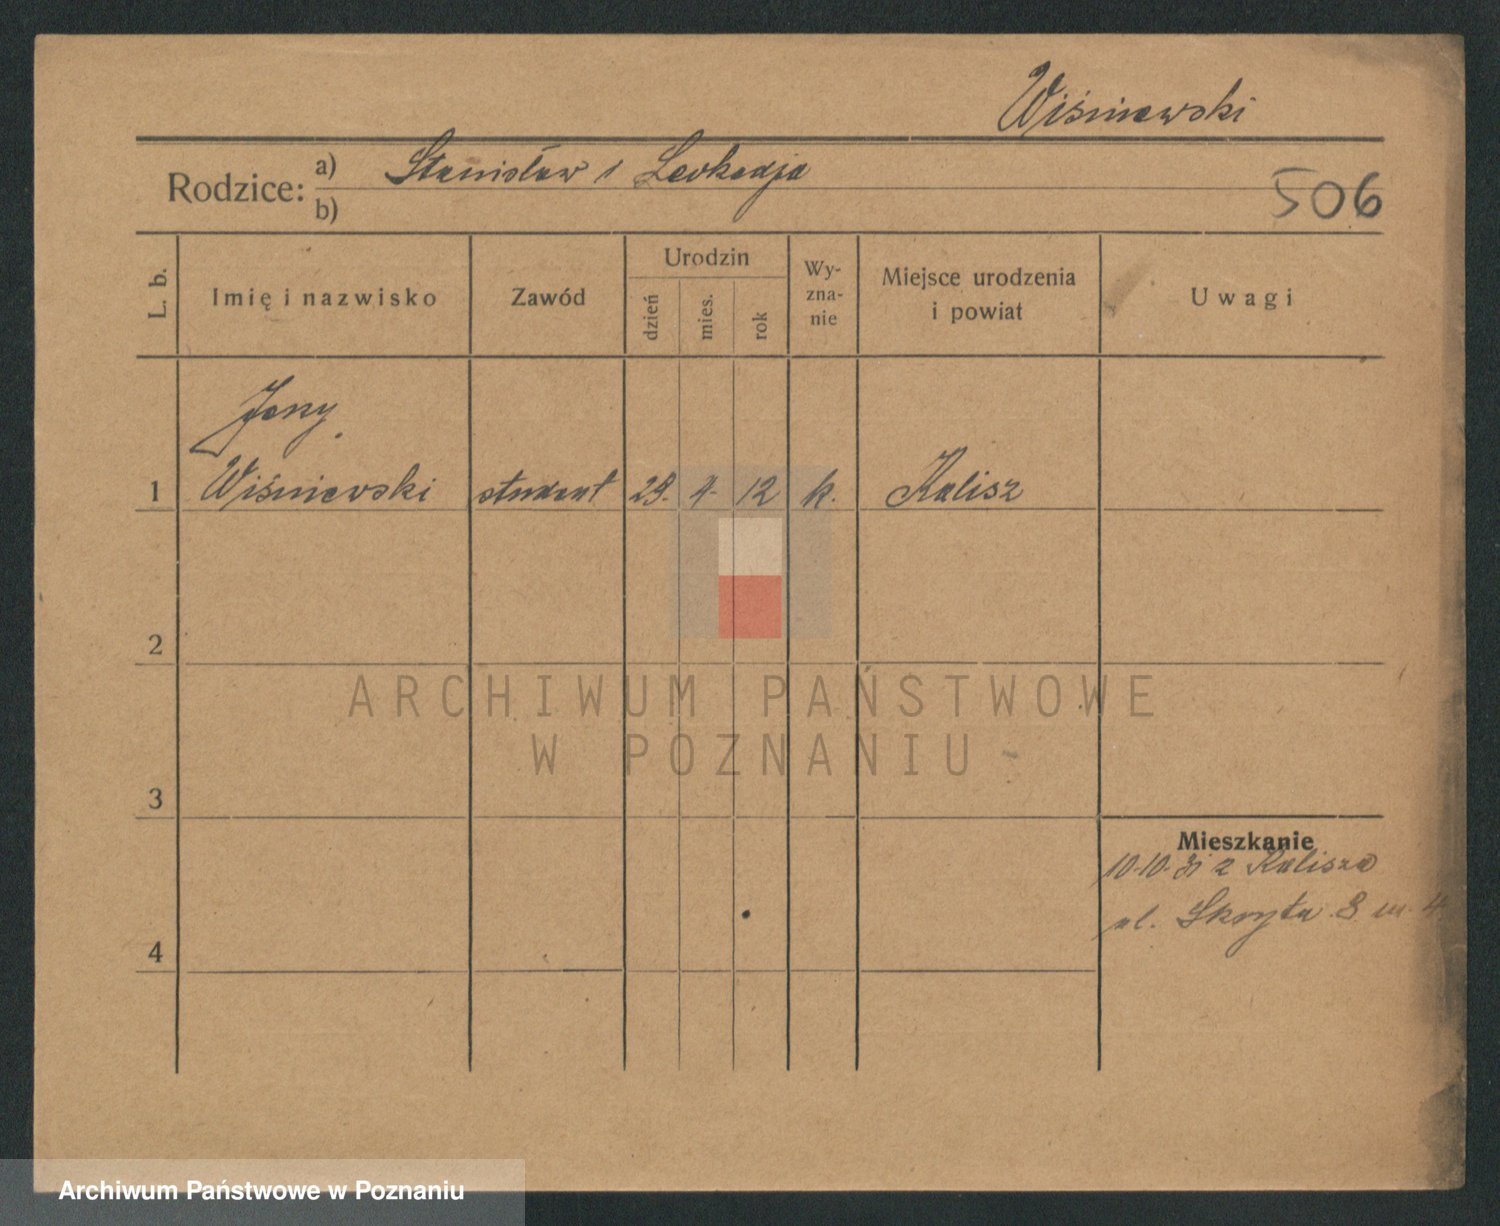 Wiśniewski
Rodzice: a) Stanisław i Leokadja
b)
506
L. b.
Imię i nazwisko
Zawód
Urodzin
dzień
mies.
rok
Wy-
zna-
nie
Miejsce urodzenia
i powiat
Uwagi
Jerzy
1 Wiśniewski student 29. 4. 12 k. Kalisz
2
ARCHIWUM PAŃSTWOWE
W POZNANIU
3
Mieszkanie
10.10.31 z Kalisza
ul. Skryta 8 m. 4.
4
Archiwum Państwowe w Poznaniu